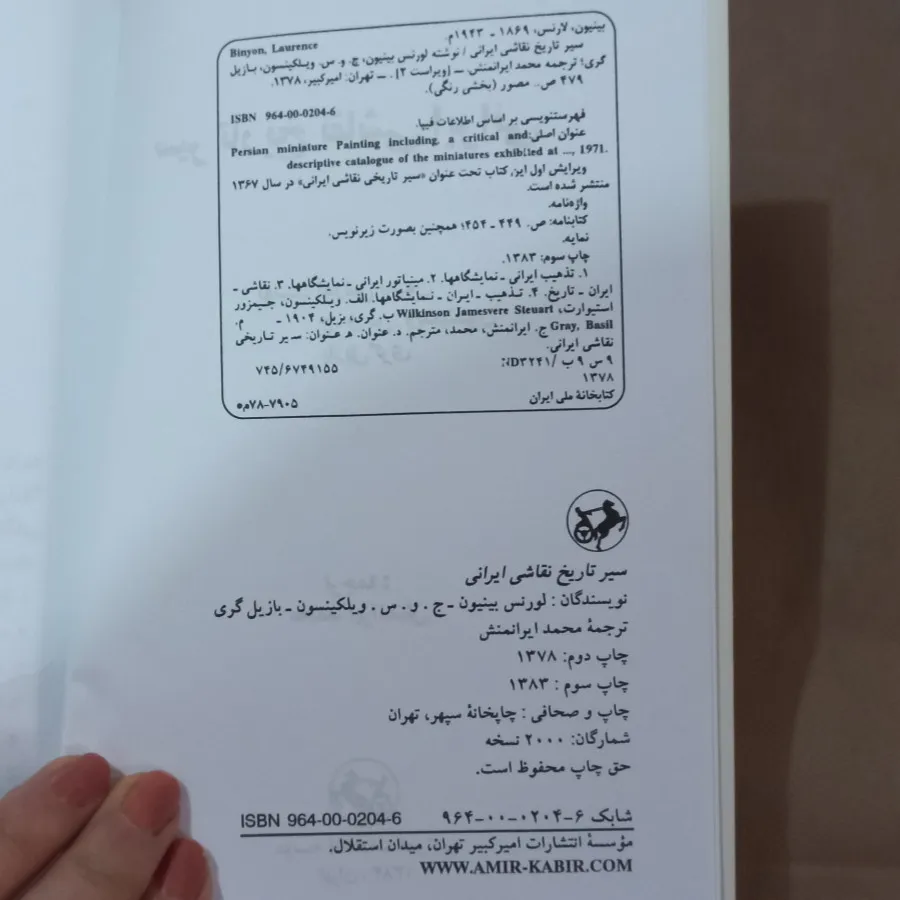 بینیون، لارنس، ۱۸۶۹ - ۱۹۴۳م.
Binyon, Laurence
سیر تاریخ نقاشی ایرانی / نوشته لورنس بینیون، ج. و. س. ویلکینسون، بازیل
گری؛ ترجمه محمد ایرانمنش. ــ [ویراست ۲]. ــ تهران: امیرکبیر، ۱۳۷۸.
۴۷۹ ص.. مصور (بخشی رنگی).
ISBN 964-00-0204-6
فهرستنویسی بر اساس اطلاعات فیپا.
عنوان اصلی: Persian miniature Painting including, a critical and
descriptive catalogue of the miniatures exhibited at ..., 1971.
ویرایش اول این کتاب تحت عنوان «سیر تاریخی نقاشی ایرانی» در سال ۱۳۶۷
منتشر شده است.
واژه‌نامه.
کتابنامه: ص. ۴۴۹ - ۴۵۴؛ همچنین بصورت زیرنویس.
نمایه.
چاپ سوم: ۱۳۸۳.
۱. تذهیب ایرانی ـ نمایشگاهها. ۲. مینیاتور ایرانی ـ نمایشگاهها. ۳. نقاشی ـ
ایران - تاریخ. ۴. تذهیب - ایران - نمایشگاهها. الف. ویلکینسون، جیمزور
استیوارت، Wilkinson Jamesvere Steuart ب. گری، بزیل، ۱۹۰۴ - م.
Gray, Basil ج. ایرانمنش، محمد، مترجم. د. عنوان. ه‍ عنوان: سیر تاریخی
نقاشی ایرانی.
۹ س ۹ ب / ND۳۲۴۱ ۷۴۵/۶۷۴۹۱۵۵
۱۳۷۸
کتابخانهٔ ملی ایران ۷۸-۷۹۰۵م
سیر تاریخ نقاشی ایرانی
نویسندگان: لورنس بینیون - ج. و. س. ویلکینسون - بازیل گری
ترجمهٔ محمد ایرانمنش
چاپ دوم: ۱۳۷۸
چاپ سوم: ۱۳۸۳
چاپ و صحافی: چاپخانهٔ سپهر، تهران
شمارگان: ۲۰۰۰ نسخه
حق چاپ محفوظ است.
شابک ۶-۰۲۰۴-۰۰-۹۶۴ ISBN 964-00-0204-6
مؤسسهٔ انتشارات امیرکبیر تهران، میدان استقلال.
WWW.AMIR-KABIR.COM